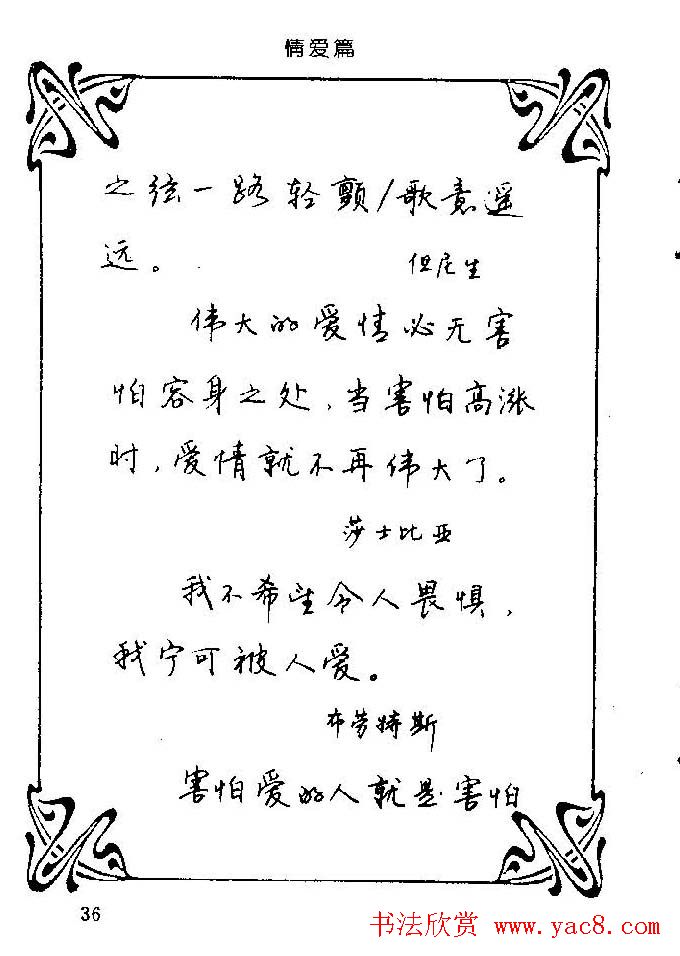 情爱篇
之弦一路轻颤/歌意遥
远。
但尼生
伟大的爱情必无害
怕容身之处,当害怕高涨
时,爱情就不再伟大了。
莎士比亚
我不希望令人畏惧,
我宁可被人爱。
布劳特斯
害怕爱的人就是害怕
36
书法欣赏 www.yac8.com